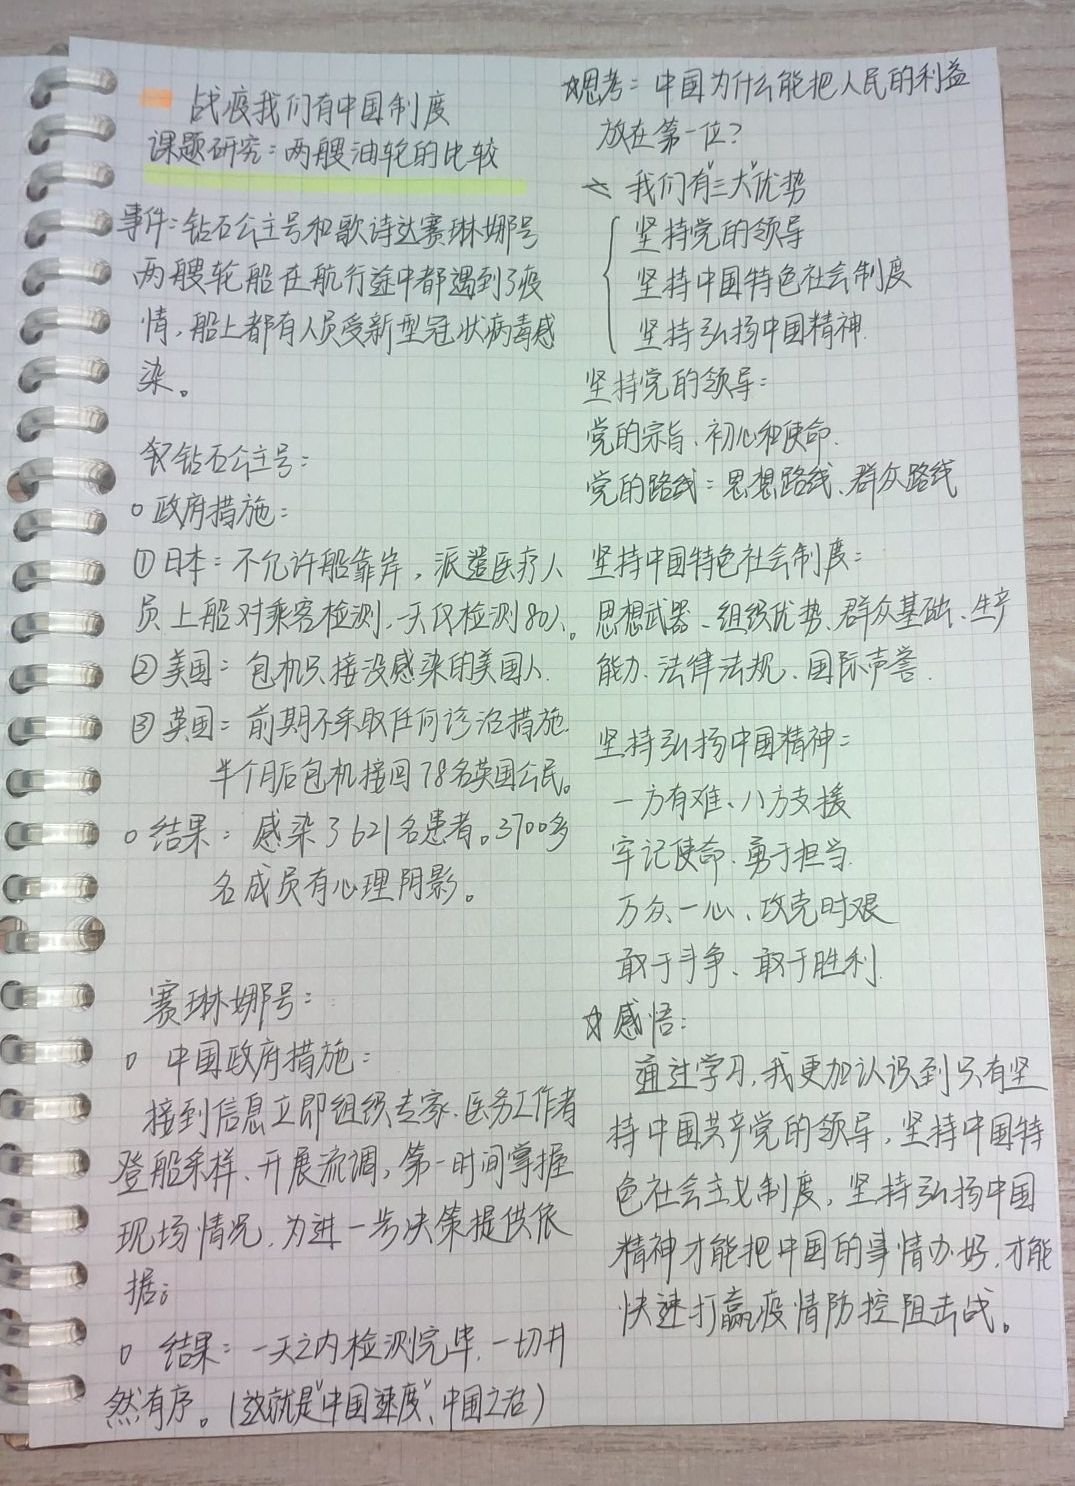 战疫我们有中国制度
课题研究：两艘油轮的比较
事件：钻石公主号和歌诗达赛琳娜号
两艘轮船在航行途中都遇到了疫
情，船上都有人员受新型冠状病毒感
染。
钻石公主号：
○政府措施：
①日本：不允许船靠岸，派遣医疗人
员上船对乘客检测，一天仅检测80人。
②美国：包机只接没感染的美国人.
③英国：前期不采取任何诊治措施.
半个月后包机接回78名英国公民。
○结果：感染了621名患者。3700多
名成员有心理阴影。
赛琳娜号：
○ 中国政府措施：
接到信息立即组织专家、医务工作者
登船采样、开展流调，第一时间掌握
现场情况，为进一步决策提供依
据。
○ 结果：一天之内检测完毕，一切井
然有序。(这就是"中国速度"、中国之治)
☆思考：中国为什么能把人民的利益
放在第一位？
我们有"三大"优势
坚持党的领导
坚持中国特色社会制度
坚持弘扬中国精神.
坚持党的领导：
党的宗旨、初心和使命.
党的路线：思想路线、群众路线
坚持中国特色社会制度：
思想武器、组织优势、群众基础、生产
能力、法律法规、国际声誉.
坚持弘扬中国精神：
一方有难、八方支援
牢记使命、勇于担当.
万众一心、攻克时艰
敢于斗争、敢于胜利.
☆感悟：
通过学习，我更加认识到只有坚
持中国共产党的领导，坚持中国特
色社会主义制度，坚持弘扬中国
精神才能把中国的事情办好，才能
快速打赢疫情防控阻击战。